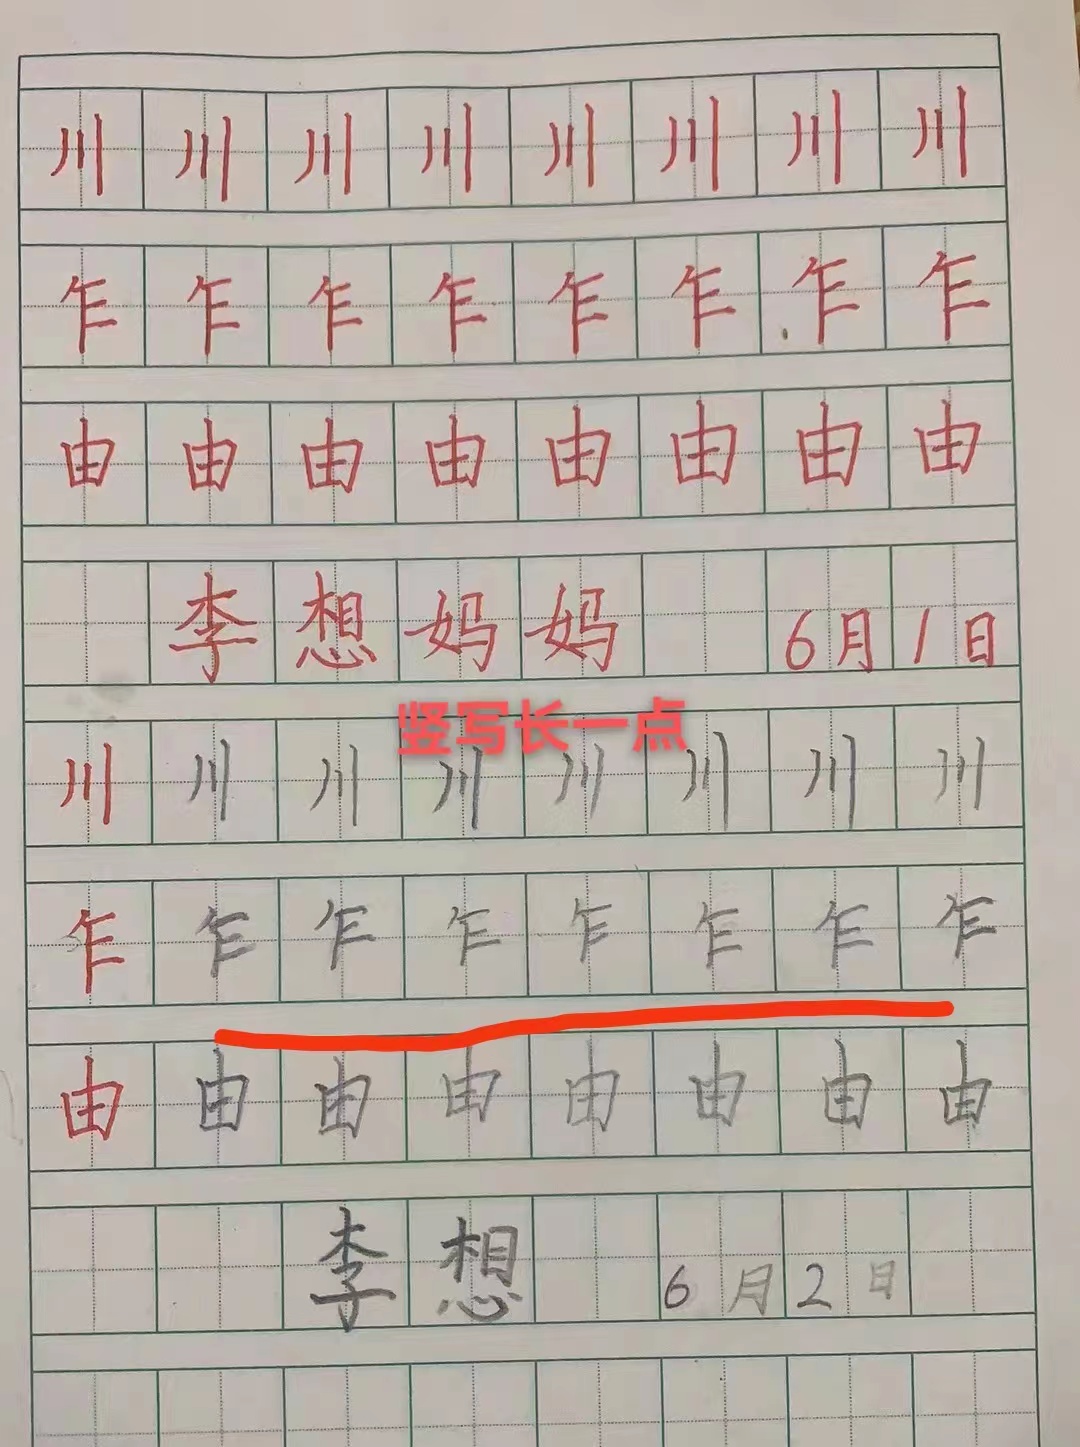 川川川川川川川川
乍乍乍乍乍乍乍乍
由由由由由由由由
李想妈妈 6月1日
竖写长一点
川川川川川川川川
乍乍乍乍乍乍乍乍
由由由由由由由由
李想 6月2日